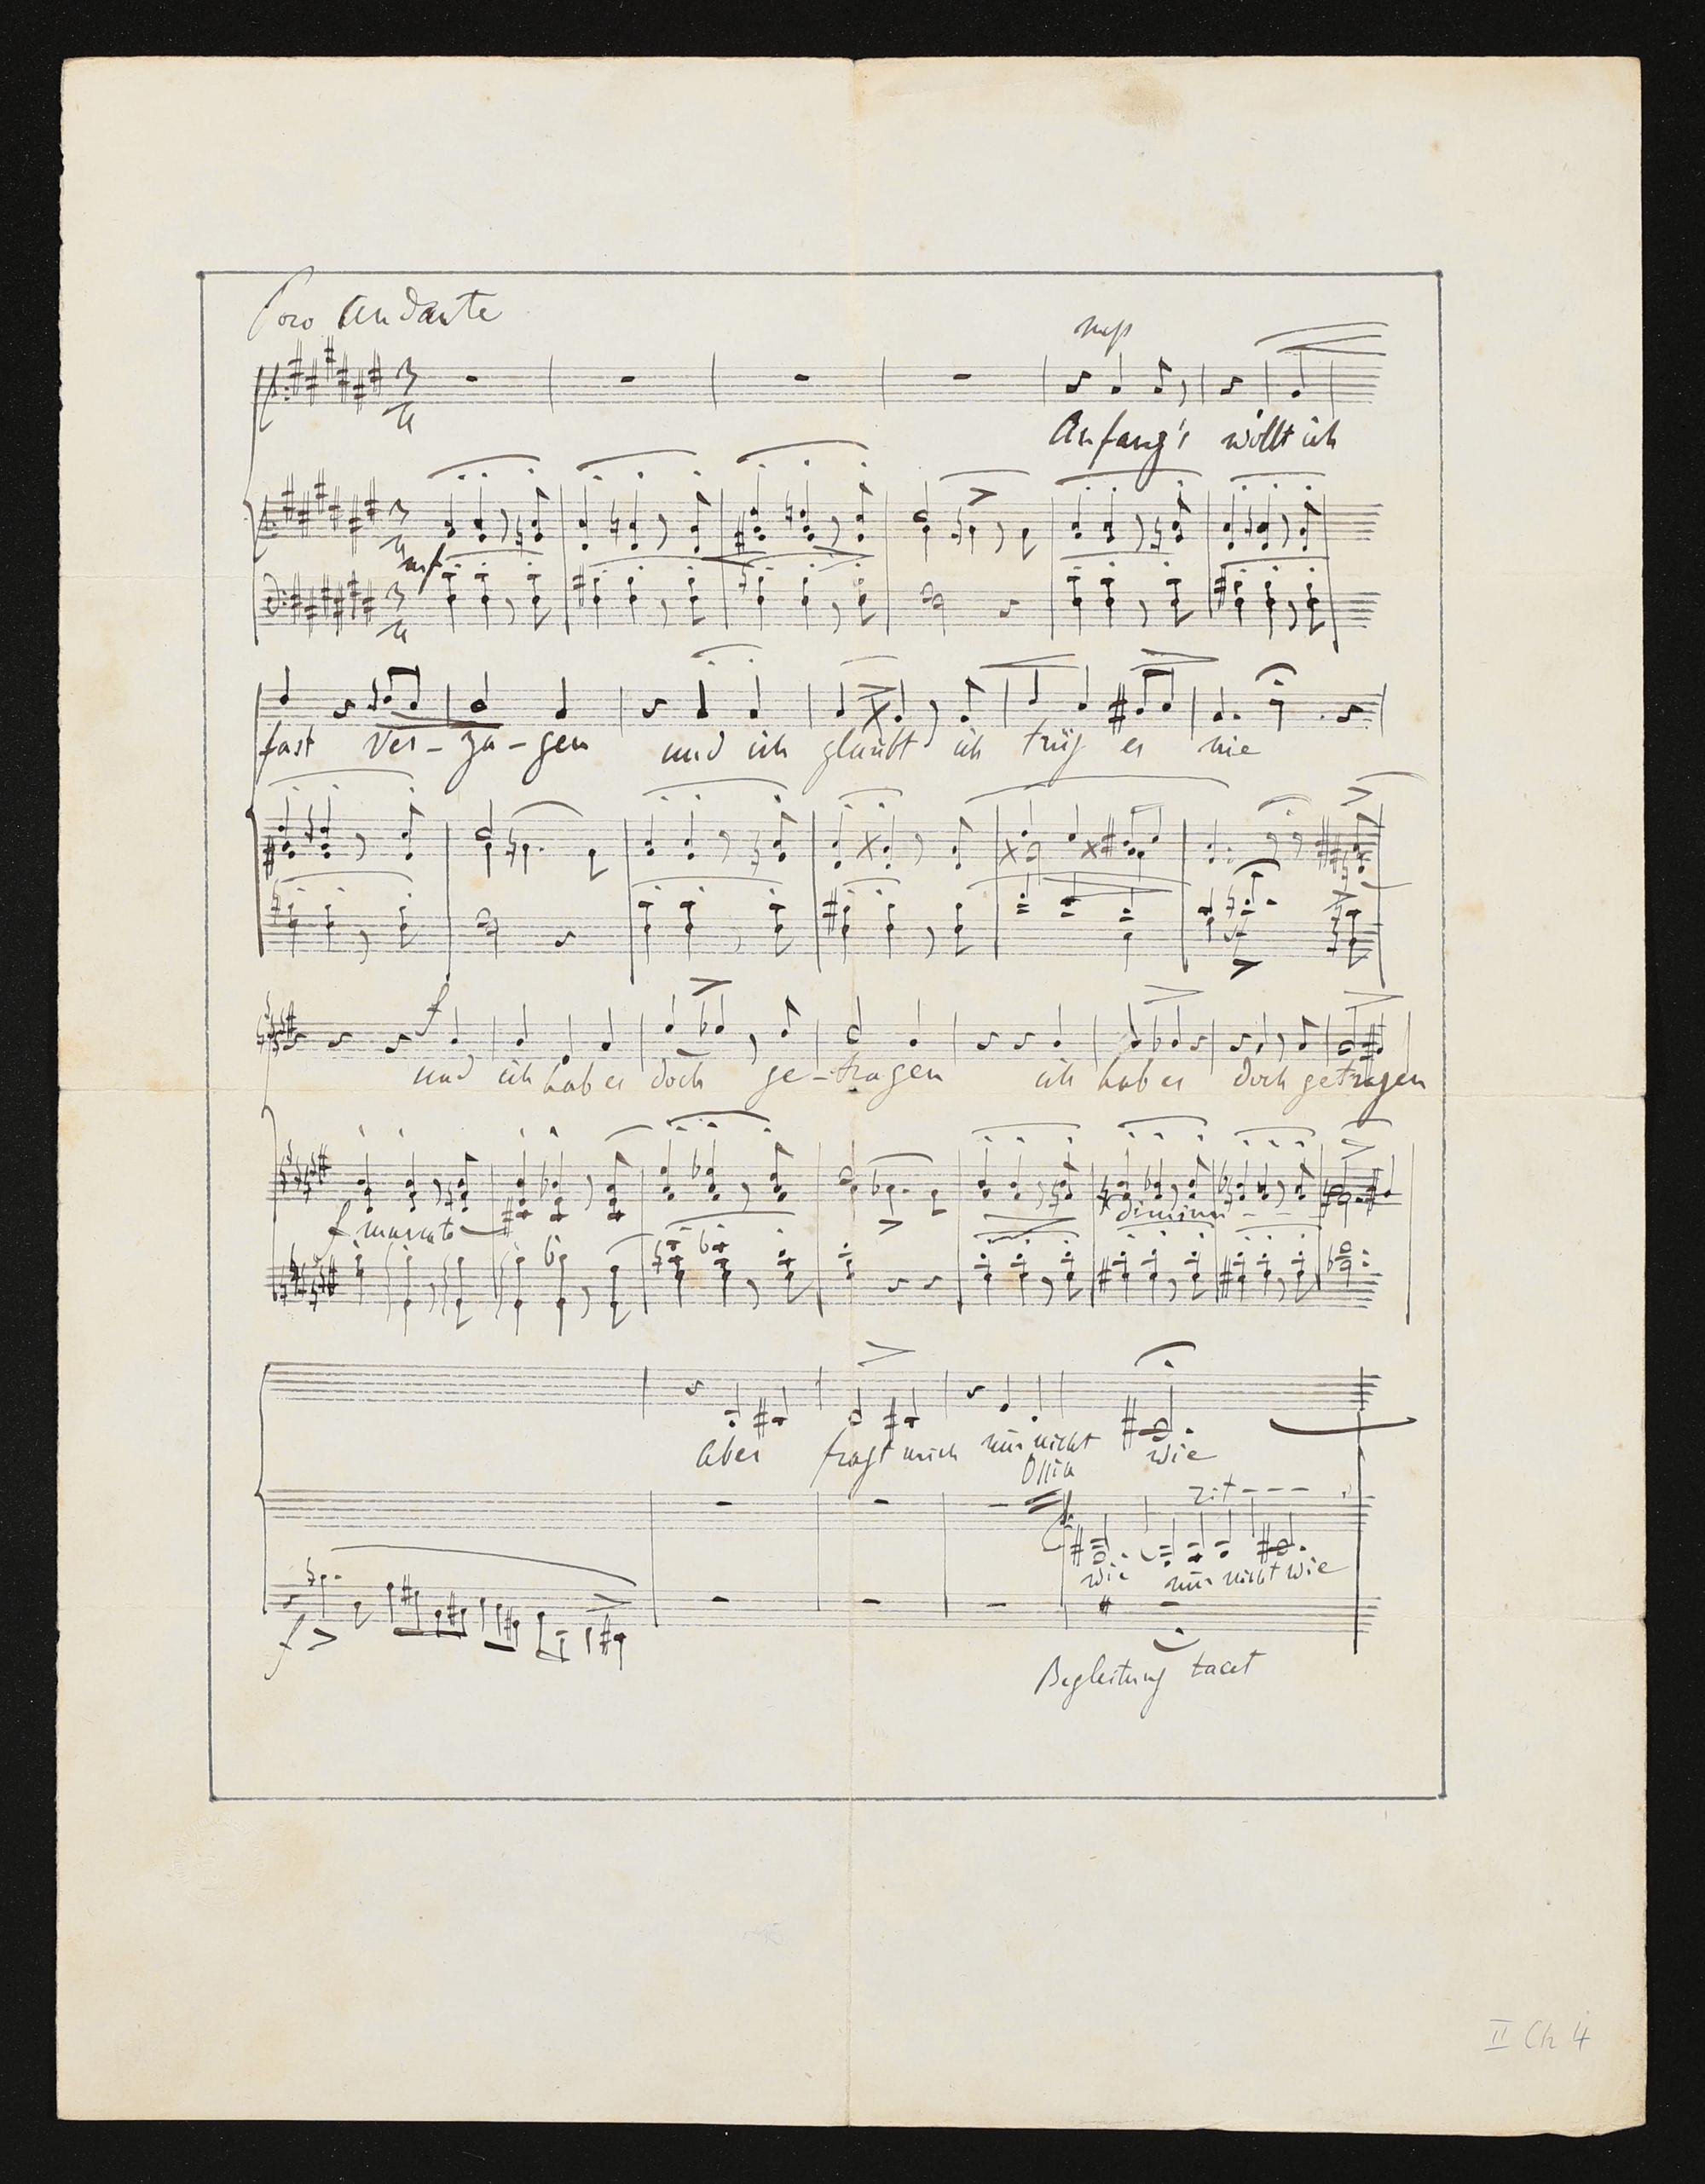 Poco Andante
mp
Anfang's wollt ich
mf
fast ver-za-gen und ich glaubt ich trüg es nie
f
und ich hab es doch ge-tragen ich hab es doch getragen
f marcato
diminu - - -
Aber fragt mich nur nicht wie
Ossia
rit - - -
wie nur nicht wie
f
Begleitung tacet
II Ch 4